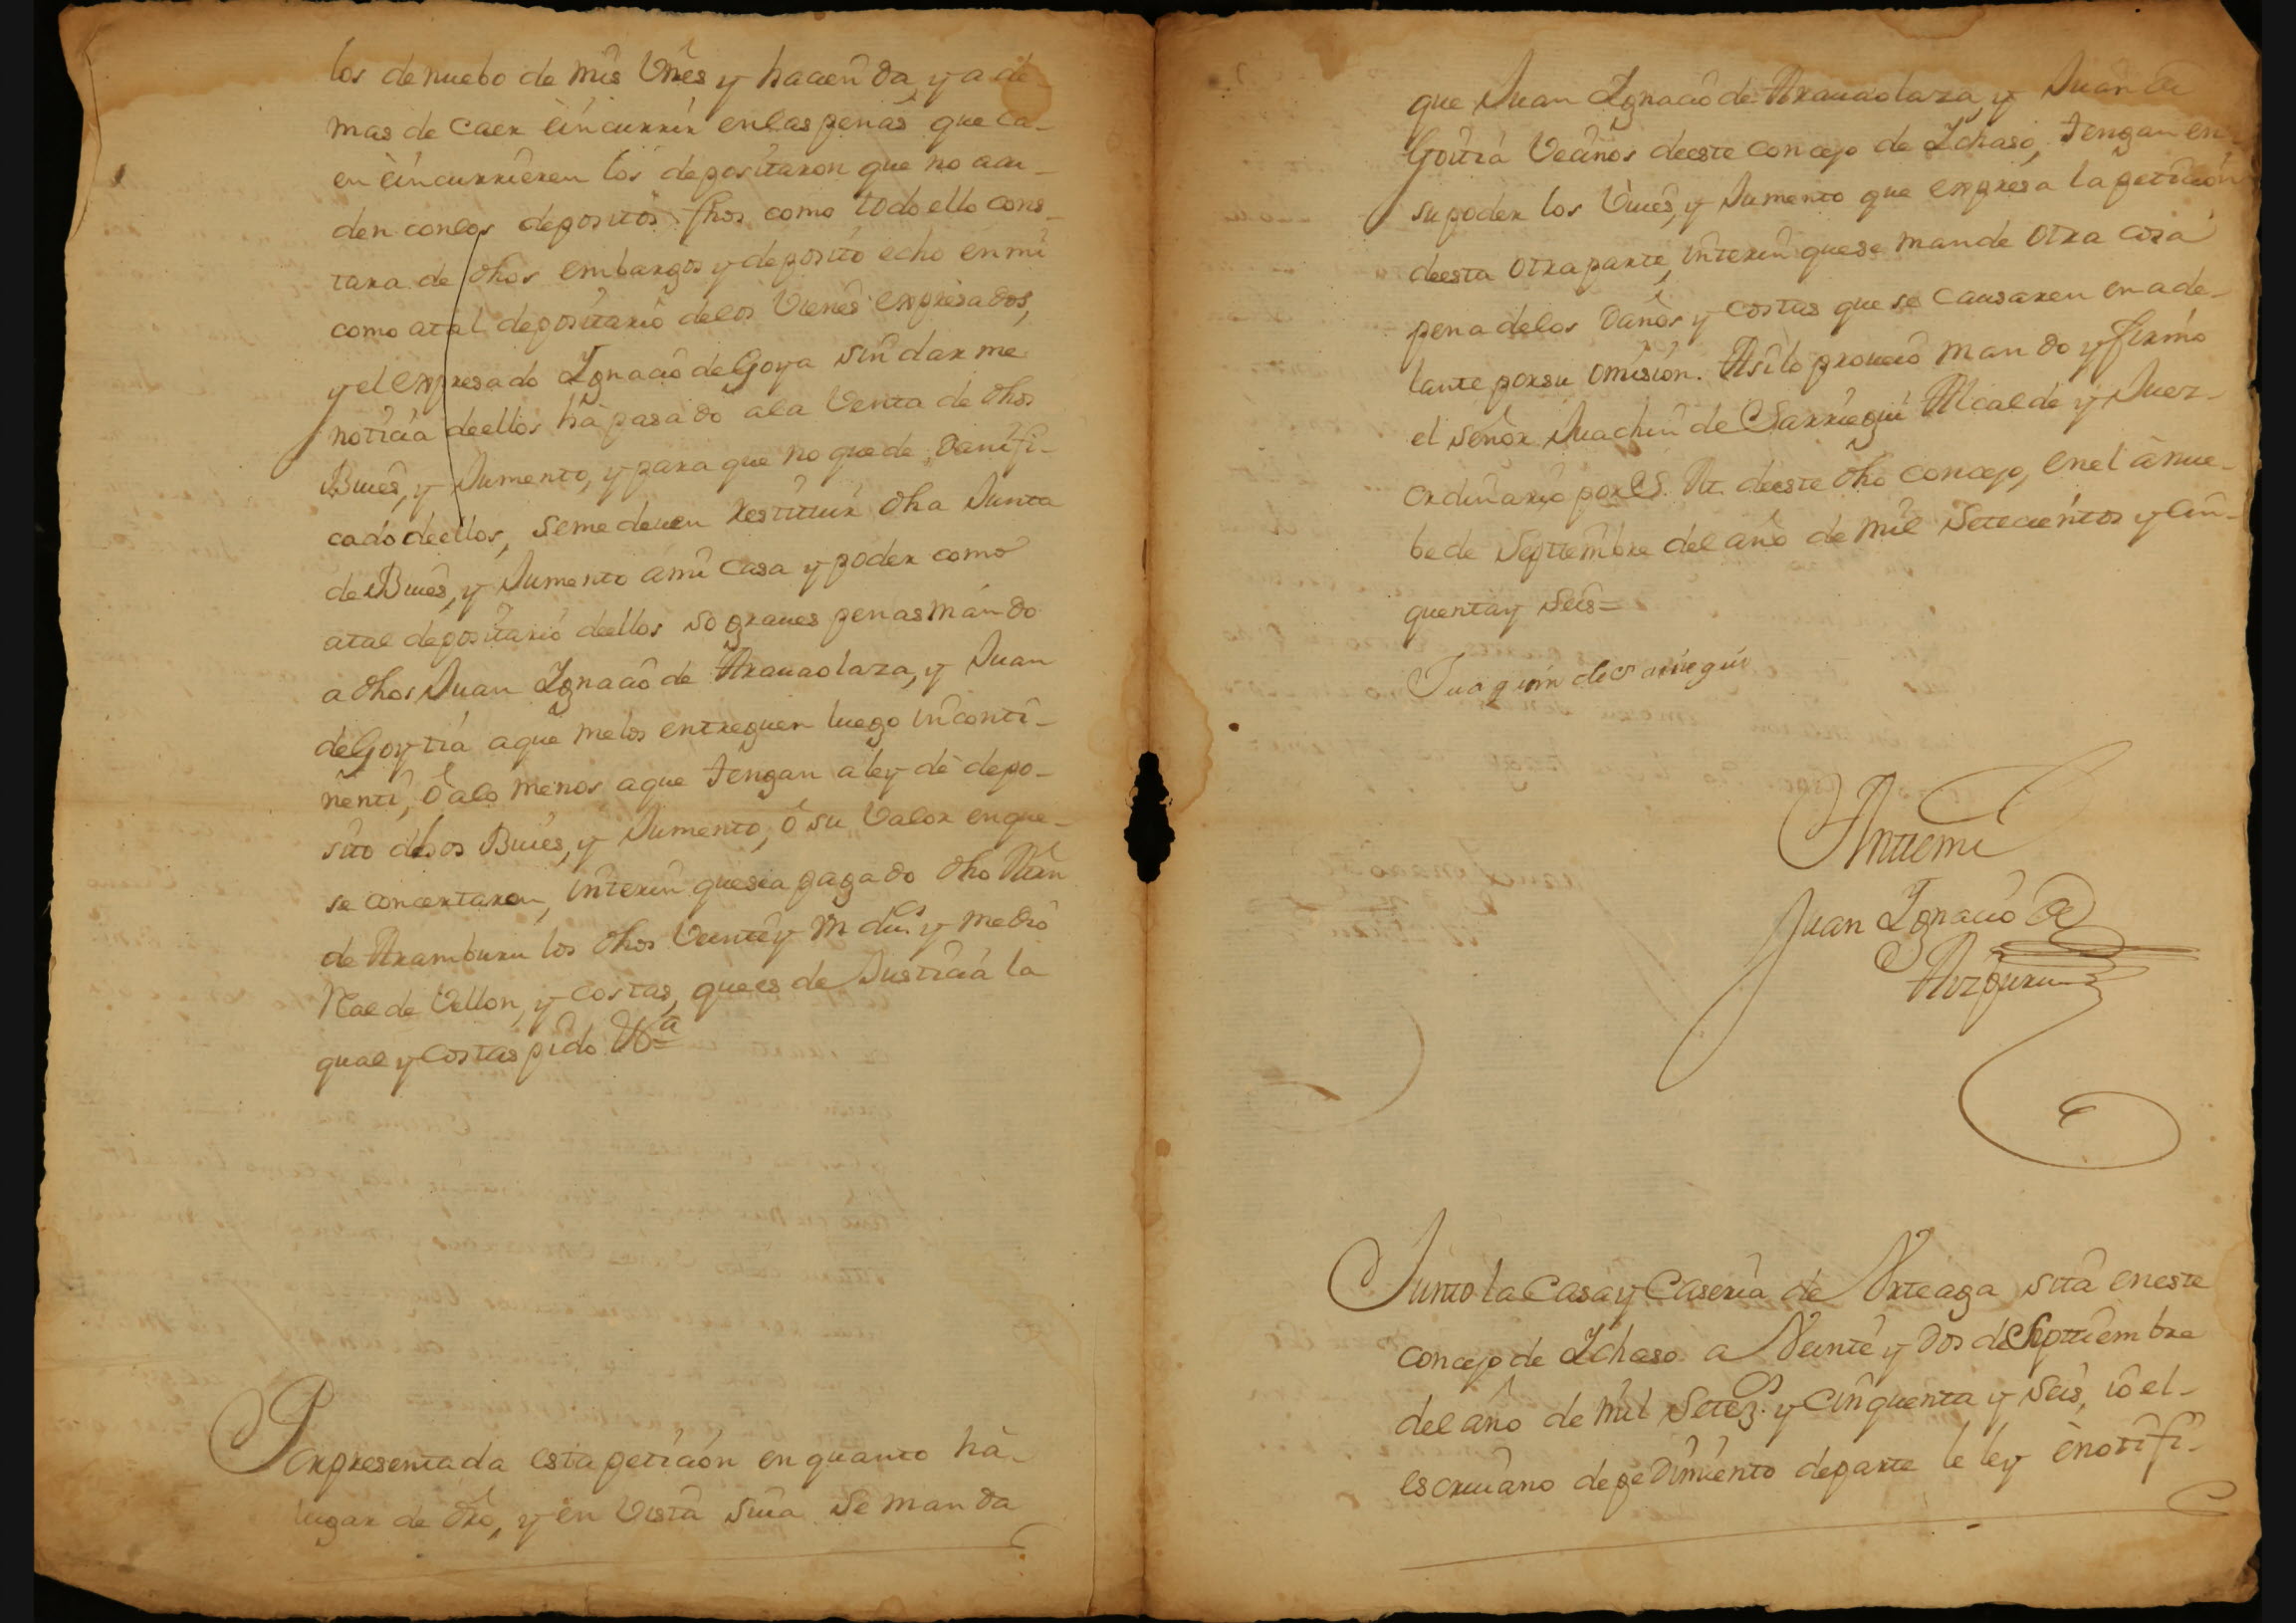 los de nuebo de mis Vnēs y hacienda, y a de-
mas de caer èincurrir en las penas que ca-
en èincurrieren los depositaron que no acu-
den con los depositos fhos como todo ello cons-
tara de dhos embargos y deposito echo en mi
como atal depositario de los Vienes expresados,
y el expresado Ignacio de Goya sin dar me
noticia de ellos hà pasado ala Venta de dhos
Bueis, y Jumento, y para que no quede Danifi-
cado de ellos, se me deuen restituir dha Junta
de Bueis, y Jumento ami Casa y poder como
atal depositario de ellos so graues penas mando
a dhos Juan Ignacio de Arauaolaza, y Juan
de Goytia aque me los entreguen luego inconti-
nenti, ò alo menos aque tengan a ley de depo-
sito dhos Bueis, y Jumento, ò su Valor en que
se concertaron, interin que sea pagado dho Mrn
de Aramburu los dhos Veinte y Vn dus. y medio
Real de Vellon, y Costas, que es de Justicia la
qual y Costas pido Vª
Por presentada esta peticion en quanto hà-
lugar de dro, y en Vista suia se manda
que Juan Ignacio de Arauaolaza, y Juan de
Goitia Vecinos de este concejo de Ichaso, tengan en
su poder los Vueis, y Jumento que expresa la peticion
de esta otra parte, interin que se mande otra cosa
pena de los Daños y costas que se Causaren en ade-
lante por su omision. Asi lo proueio mando y firmo
el señor Juachin de Sarriegui Alcalde y Juez
ordinario por S. M. de este dho concejo, en el à nue-
be de Septiembre del año de mil setecientos y Cin-
quenta y seis=
Juaquin de Sarriegui
Ante mi
Juan Ignacio de
Aizpuru
Junto la Casa y Caseria de Arteaga sita en este
concejo de Ichaso a Veinte y dos de Septtiembre
del año de mil setez.s y Cinquenta y seis, io el-
escriuano de pedimiento de parte le ley ènotifi-